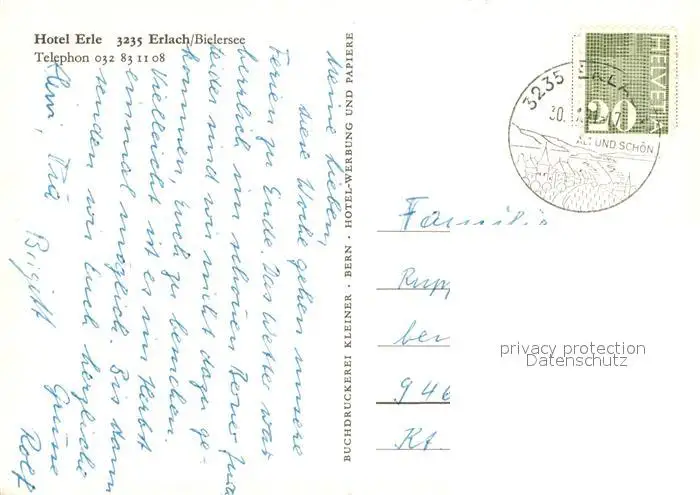 Hotel Erle 3235 Erlach/Bielersee
Telephon 032 83 11 08
Meine Lieben,
diese Woche gehen unsere
Ferien zu Ende. Das Wetter war
herrlich im schönen Berner Jura
leider sind wir nicht dazu ge-
kommen, Euch zu besuchen.
Vielleicht ist es im Herbst
einmal möglich. Bis dann
senden wir Euch herzliche
Grüsse
Rolf
Birgitt
BUCHDRUCKEREI KLEINER · BERN · HOTEL-WERBUNG UND PAPIERE
HELVETIA
20
3235
30.
ALT UND SCHÖN
Familie
Rupp
bei
946
Kt.
privacy protection
Datenschutz